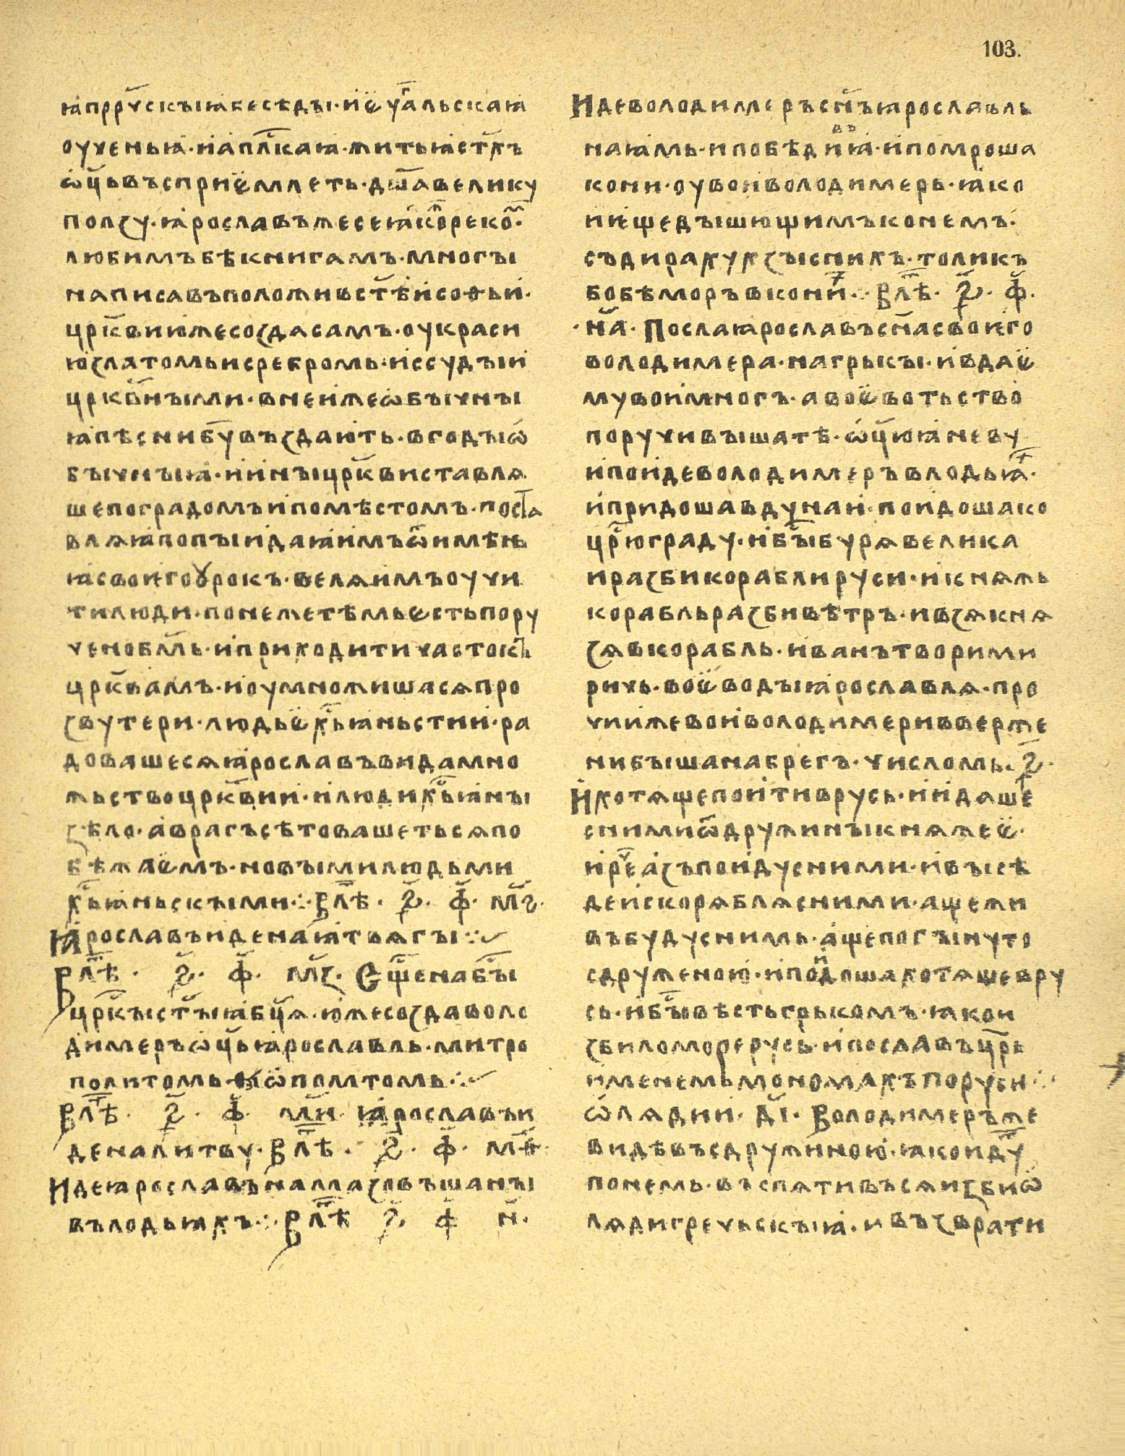 103.
ꙗпррⷪ҇ускыꙗбесѣды·иёуⷢ҇альскаꙗ
оученьꙗ·иапⷭ҇лкаꙗ·житьꙗстⷯ҇ъ
ѡц҃ьвъсприёмлеть·дш҃авелику
ползу·ꙗрославъжесеꙗкорекоⷯ·
любимъбѣкнигамъ·многы
написавъположивст҃ѣисофьи·
црк҃виижесоздасамъ·оукраси
юзлатомьисребромь·иссудыи
црквⷩ҇ыми·внеижеѡбычны
ꙗпѣснибу҃въздають·вгодыѡ
бычныꙗ·ииныцрк҃виставлѧ
шепоградомъипомѣстомъ·поста
влѧꙗпопыидаꙗимъѿимѣнь
ꙗсвоиегоꙋрокъ·велѧимъоучи
тилюди·понежетѣмьесть пору
ченоб҃мь·иприходитичастокъ
црк҃вамъ·иоумножишасѧпро
звутери·людьёхрⷭ҇ьꙗньстии·ра
довашесѧꙗрославъвидамно
жьствоцрк҃вии·илюдихрⷭ҇ьꙗны
зѣло·аврагъсѣтовашетьсѧпо
бѣжаёмъ·новымилюдьми
хрⷭ҇ьꙗньскыми·:·влⷮѣ·҂ѕ҃·ф҃·м҃г·
Ꙗрославъиденаꙗтвѧгы·:·
Влⷮѣ·҂ѕ҃·ф҃·м҃з·Сщ҃енабы҃
црк҃ыст҃ыꙗбц҃ѧ·южесоздаволо
димеръѡц҃ьꙗрославль·митро
политомь·ѳѡпомтомь·:·
Влⷮѣ·҂ѕ҃·ф҃·м҃и·ꙗрославъи
деналитву·влⷮѣ·҂ѕ҃·ф҃·м҃ѳ·
Идеꙗрославънамазовъшаны
въlодьꙗхъ·:·влⷮѣ҂ѕ҃ф҃н҃·
Идеволодимеръсн҃ъꙗрославль
наꙗмь·ипобѣдивъꙗ·ипомроша
кони·оувоиволодимерь·ꙗко
иищедышющимъконемъ·
съдирахухзыснихъ·толикъ
бобѣморъвконихъ·:·влⷮѣ·҂ѕ҃·ф҃·
·н҃а·Посласꙗрославъсн҃асвоиего
володимера·нагрькы·ивдаё
мувоимногъ·авоёвотьство
поручивышатѣ·ѡц҃юꙗневу
ипоидеволодимеръвлодьꙗⷯ·
ипридошавдунаи·поидошако
црⷭ҇юграду·ибыⷭ҇бурѧвелика
иразбикораблируси·икнѧжь
корабльразбивѣтръ·ивзѧкнѧ
зѧвкорабль·иванътворими
ричь·воёводыꙗрославлѧ·про
чиижевоиволодимеривверже
нибышанабрегъ·числомь·҂ѕ҃·
Ихотѧщепоитиврусь·иидѧше
снимиѿдружиныкнѧжеё·
иреⷱ҇азъпоидусними·ивысѣ
деискораблѧсними·ащежи
въбудусними·ащепогынуто
сдруженою·ипоидошахотѧщевру
сь·ибыⷭ҇вѣстьгрькомъ·ꙗкои
збиломорерусь·ипославъцрⷭ҇ь
именемьмономахъпоруси·:·
ѡлѧдии·д҃і·Володимеръже
видѣвъсдружиною·ꙗкоидуⷮ
понемь·въспѧтивъсѧизбиѡ
лѧдигречьскыꙗ·ивъзврати